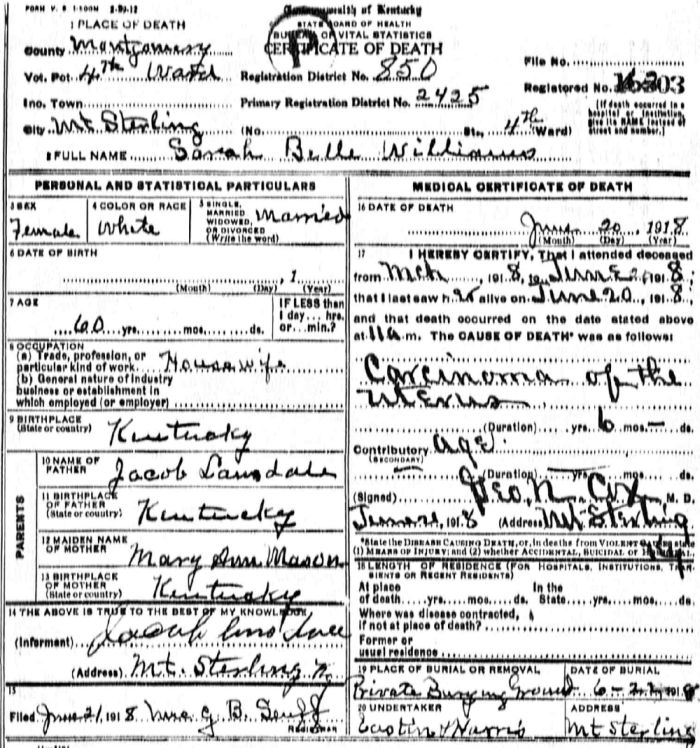 FORM V. S. 1-500M 2-20-12
Commonwealth of Kentucky
STATE BOARD OF HEALTH
BUREAU OF VITAL STATISTICS
CERTIFICATE OF DEATH
1 PLACE OF DEATH
County Montgomery
Vot. Pct 4th Ward Registration District No. 850
File No.
Inc. Town Primary Registration District No. 2425
Registered No.
[If death occurred in a hospital or institution, give its NAME instead of street and number.]
City Mt Sterling (No. St., 4th Ward)
2 FULL NAME Sarah Belle Williams
PERSONAL AND STATISTICAL PARTICULARS
3 SEX Female
4 COLOR OR RACE White
5 SINGLE, MARRIED WIDOWED, OR DIVORCED (Write the word) Married
6 DATE OF BIRTH
, 1
(Month) (Day) (Year)
7 AGE
60 yrs. mos. ds.
IF LESS than 1 day... hrs. or... min.?
8 OCCUPATION
(a) Trade, profession, or particular kind of work Housewife
(b) General nature of industry business or establishment in which employed (or employer)
9 BIRTHPLACE (State or country) Kentucky
PARENTS
10 NAME OF FATHER Jacob Lansdale
11 BIRTHPLACE OF FATHER (State or country) Kentucky
12 MAIDEN NAME OF MOTHER Mary Ann Mason
13 BIRTHPLACE OF MOTHER (State or country) Kentucky
14 THE ABOVE IS TRUE TO THE BEST OF MY KNOWLEDGE
(Informant) Jacob
(Address) Mt. Sterling
15
Filed June 21 1918 B.
REGISTRAR
MEDICAL CERTIFICATE OF DEATH
16 DATE OF DEATH
June 20, 1918
(Month) (Day) (Year)
17 I HEREBY CERTIFY, That I attended deceased
from Mch, 1918, to June 2, 1918,
that I last saw her alive on June 20, 1918,
and that death occurred on the date stated above
at 11 a.m. The CAUSE OF DEATH* was as follows:
Carcinoma of the
uterus
(Duration) yrs. 6 mos. ds.
Contributory age
(SECONDARY)
(Duration) yrs. mos. ds.
(Signed) Geo. N. Cox, M. D.
June 21, 1918 (Address) Mt Sterling
*State the DISEASE CAUSING DEATH, or, in deaths from VIOLENT CAUSES, state
(1) MEANS OF INJURY; and (2) whether ACCIDENTAL, SUICIDAL or
18 LENGTH OF RESIDENCE (FOR HOSPITALS, INSTITUTIONS, TRANSIENTS OR RECENT RESIDENTS)
At place of death yrs. mos. ds. In the State yrs. mos. ds.
Where was disease contracted, if not at place of death?
Former or usual residence
19 PLACE OF BURIAL OR REMOVAL Private Burying Ground
DATE OF BURIAL 6-22 1918
20 UNDERTAKER Eastin & Harris
ADDRESS Mt Sterling